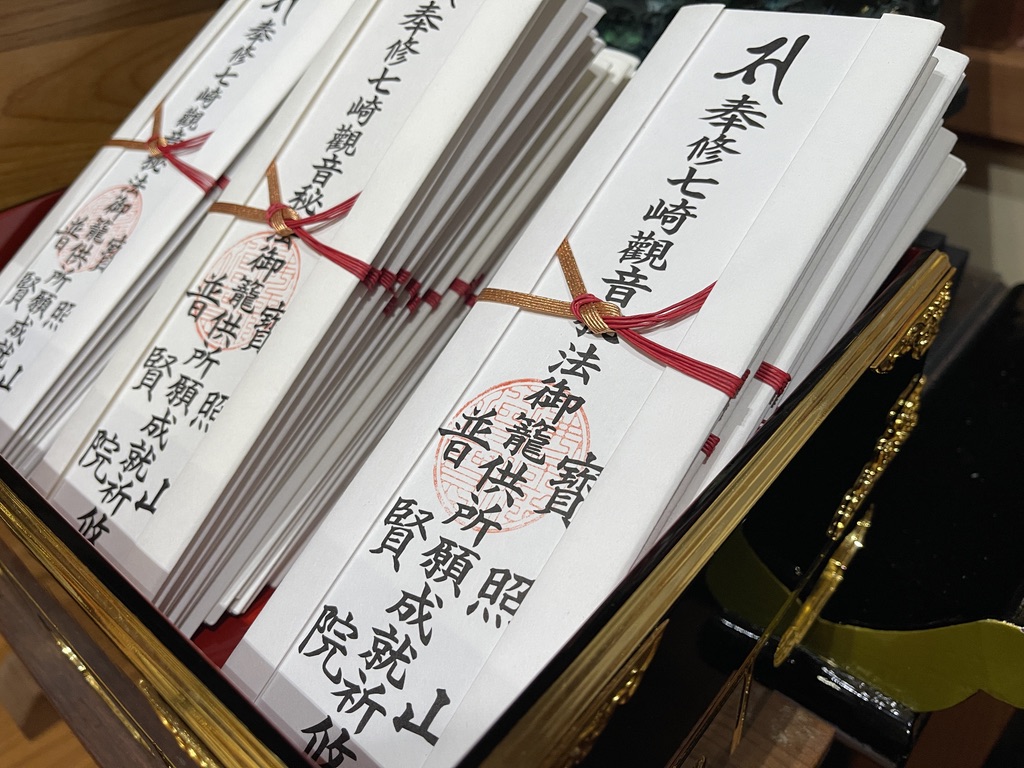 寶照山
奉修七崎觀音秘法御籠供所願成就祈攸
普賢院
寶照山
奉修七崎觀音秘法御籠供所願成就祈攸
普賢院
寶照山
奉修七崎觀音秘法御籠供所願成就
普賢